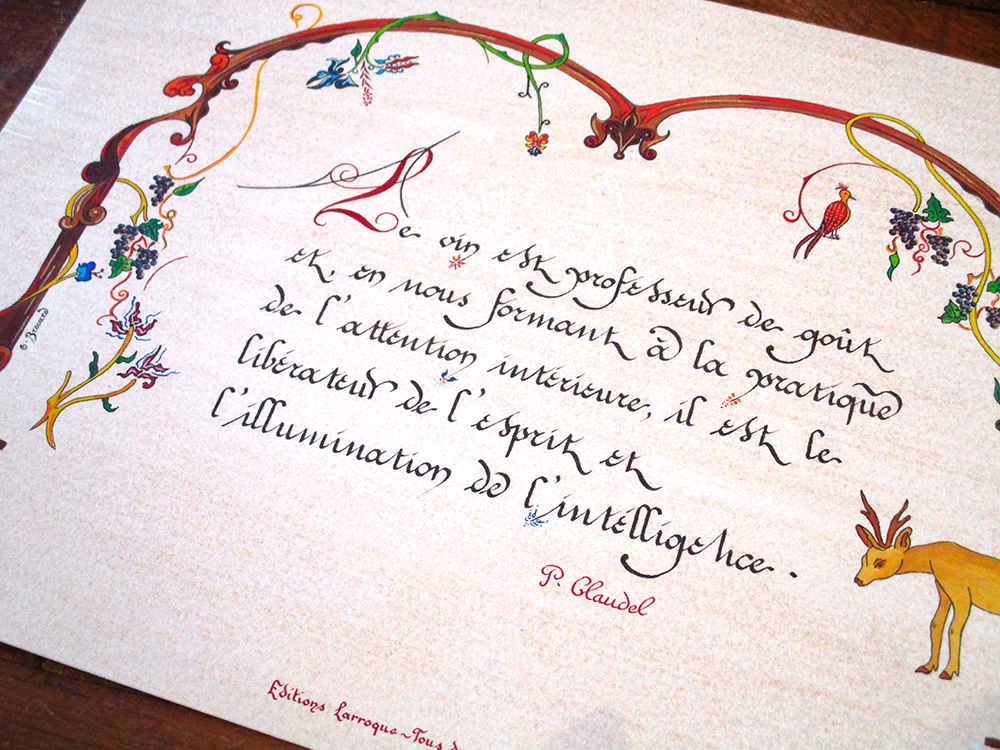 Le vin est professeur de goût
et, en nous formant à la pratique
de l'attention intérieure, il est le
libérateur de l'esprit et
l'illumination de l'intelligence.
P. Claudel
Editions Larroque ~ Tous d
G. Brouard